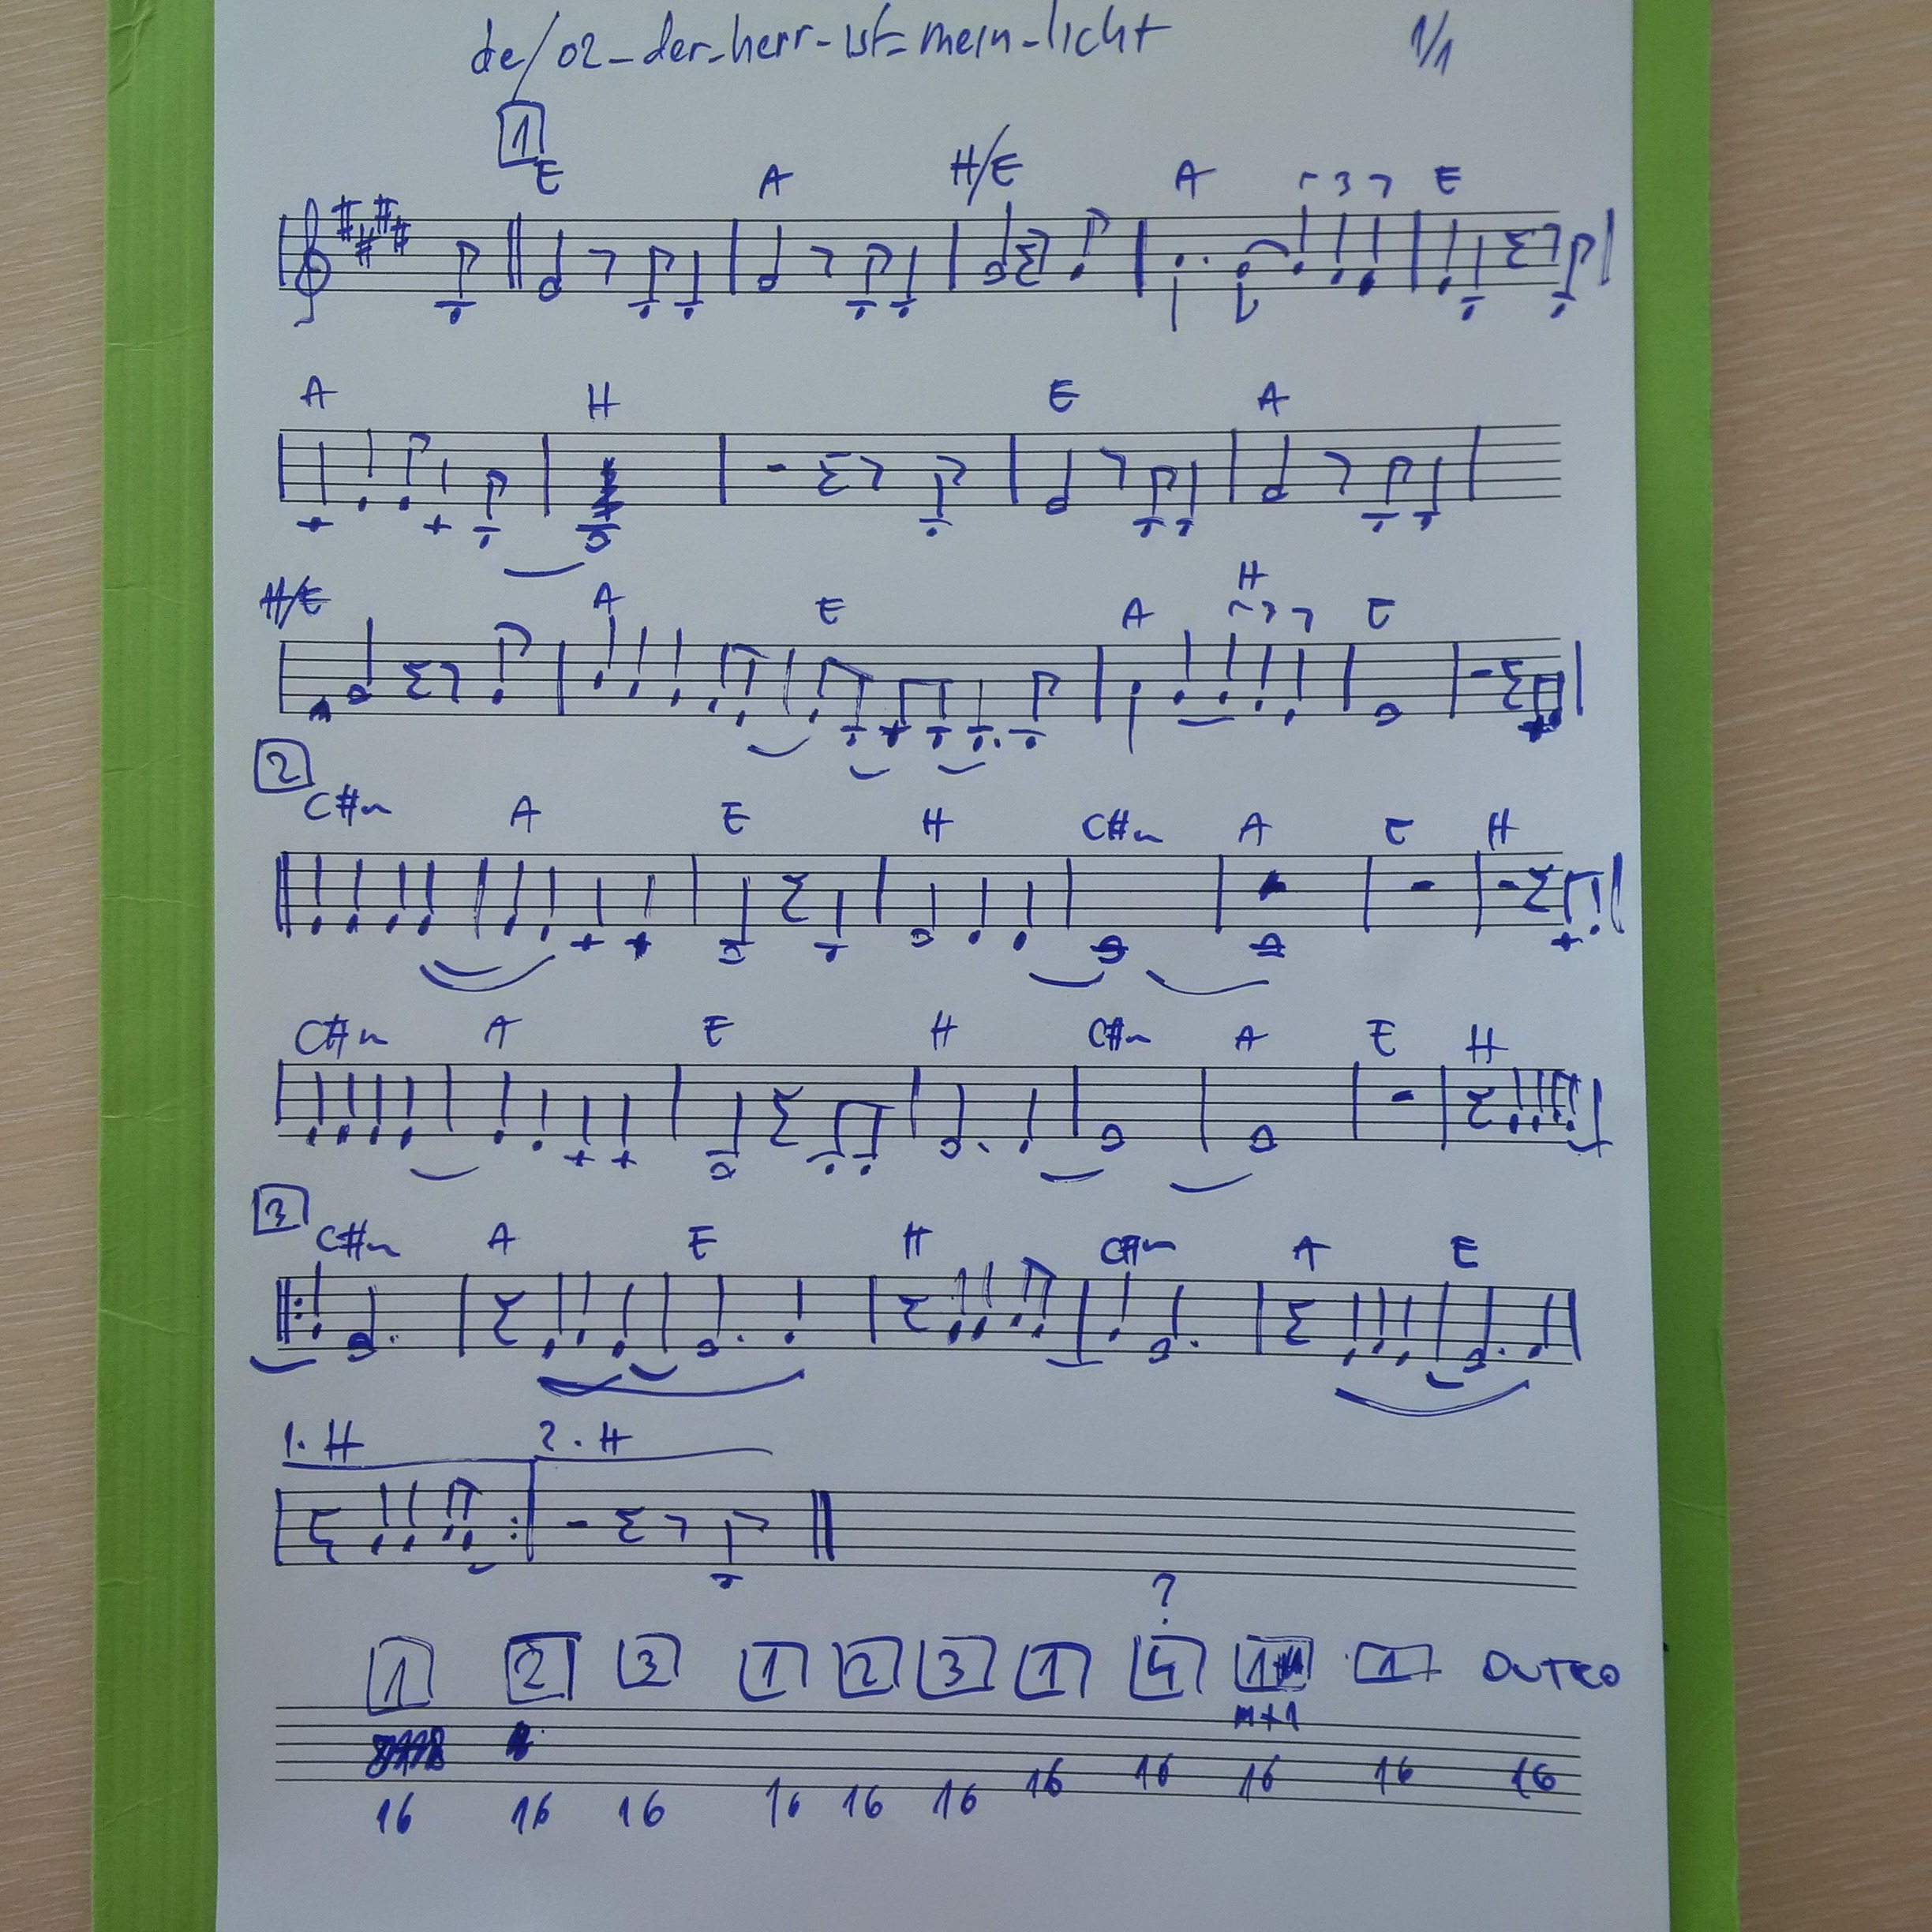 de/02_der-herr-ist-mein-licht 1/1
1
E A H/E A 3 E
A H E A
H
H/E A E A 3 E
2
C#m A E H C#m A E H
C#m A E H C#m A E H
3
C#m A E H C#m A E
1. H 2. H
?
1 2 3 1 2 3 1 4 1 1 OUTRO
m+1
16 16 16 16 16 16 16 16 16 16 16